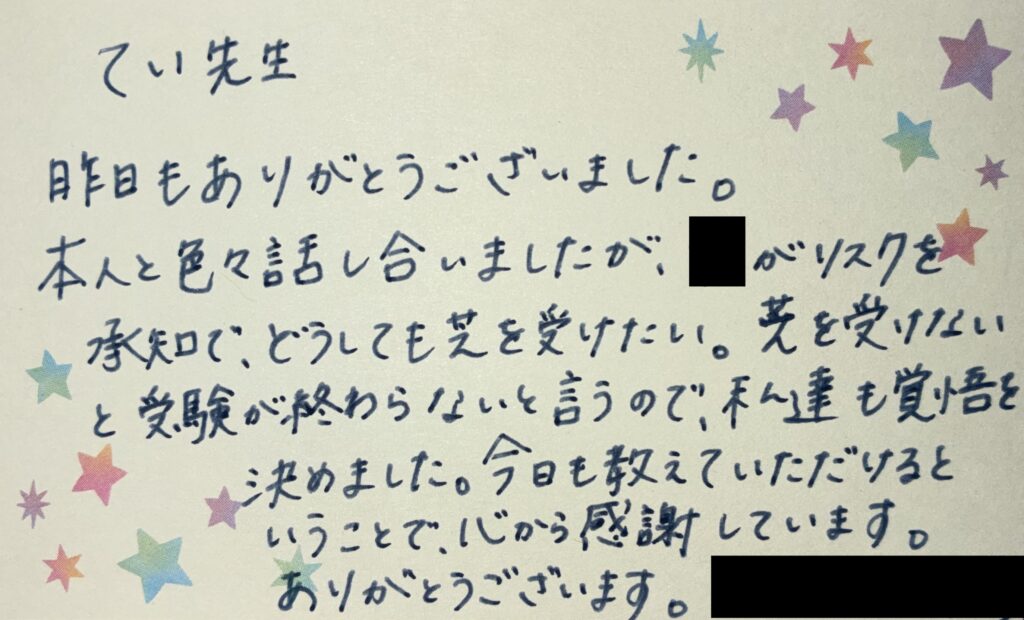 てい先生
昨日もありがとうございました。
本人と色々話し合いましたが、 がリスクを
承知で、どうしても芝を受けたい。芝を受けない
と受験が終わらないと言うので、私達も覚悟を
決めました。今日も教えていただけると
いうことで、心から感謝しています。
ありがとうございます。